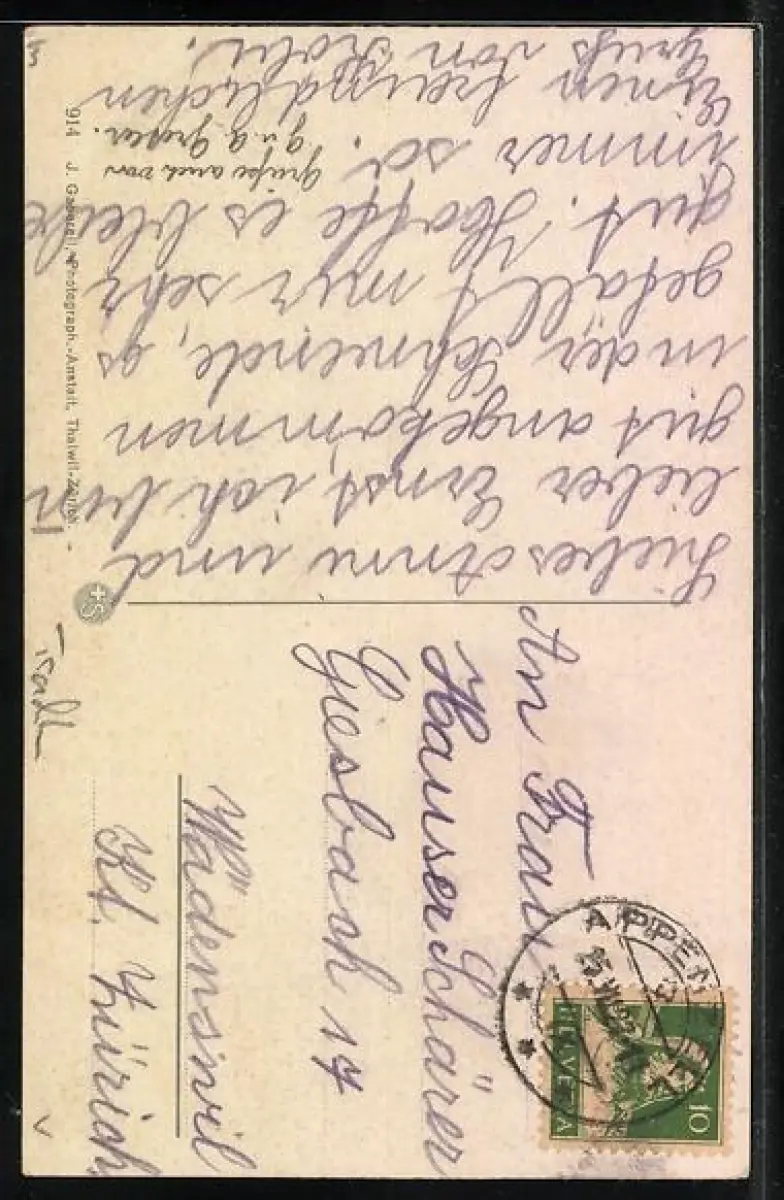 Liebes Anni und
lieber Ernst, ich bin
gut angekommen
in der Schwende, es
gefällt mir sehr
gut. Hoffe es bleibe
immer so.
Einen freundlichen
Gruß von
Grüße auch von
914 J. Gaberell, Photograph.-Anstalt, Thalwil-Zürich.
+S
An Frau
Hauser Schärer
Giesbach 14
Wädenswil
Kt. Zürich
APPENZELL
25. VII.
HELVETIA
10